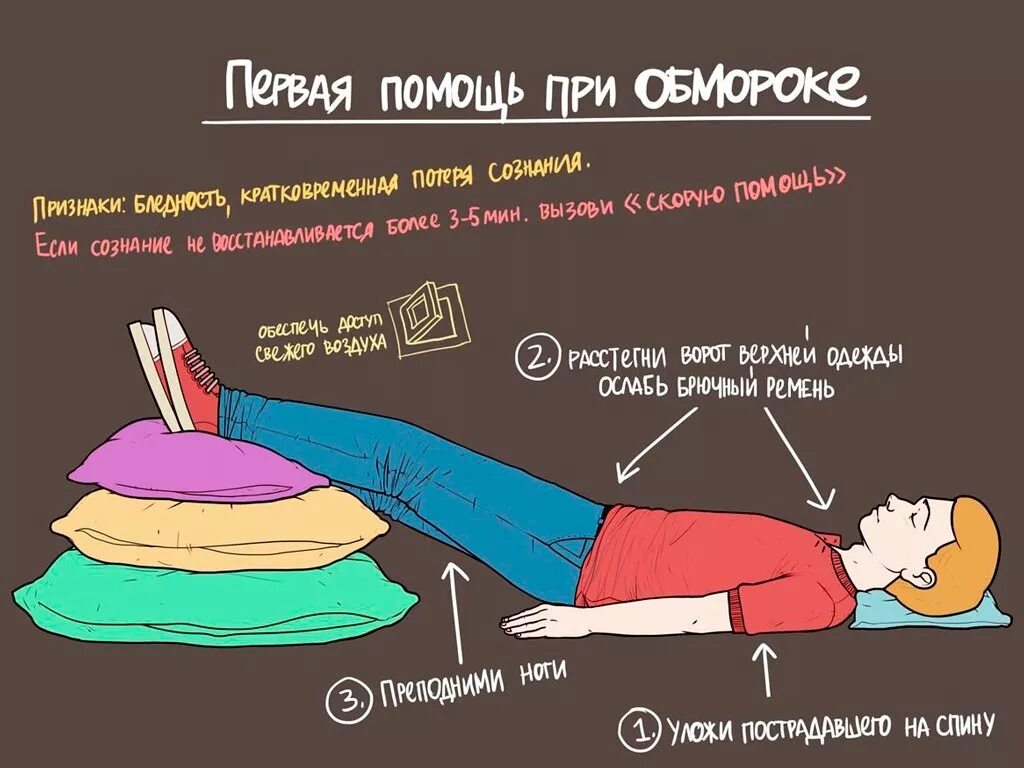 Первая помощь при ОБМОРОКЕ
Признаки: бледность, кратковременная потеря сознания.
Если сознание не восстанавливается более 3-5 мин. вызови «скорую помощь»
обеспечь доступ
свежего воздуха
2. расстегни ворот верхней одежды
ослабь брючный ремень
3. Преподними ноги
1. Уложи пострадавшего на спину